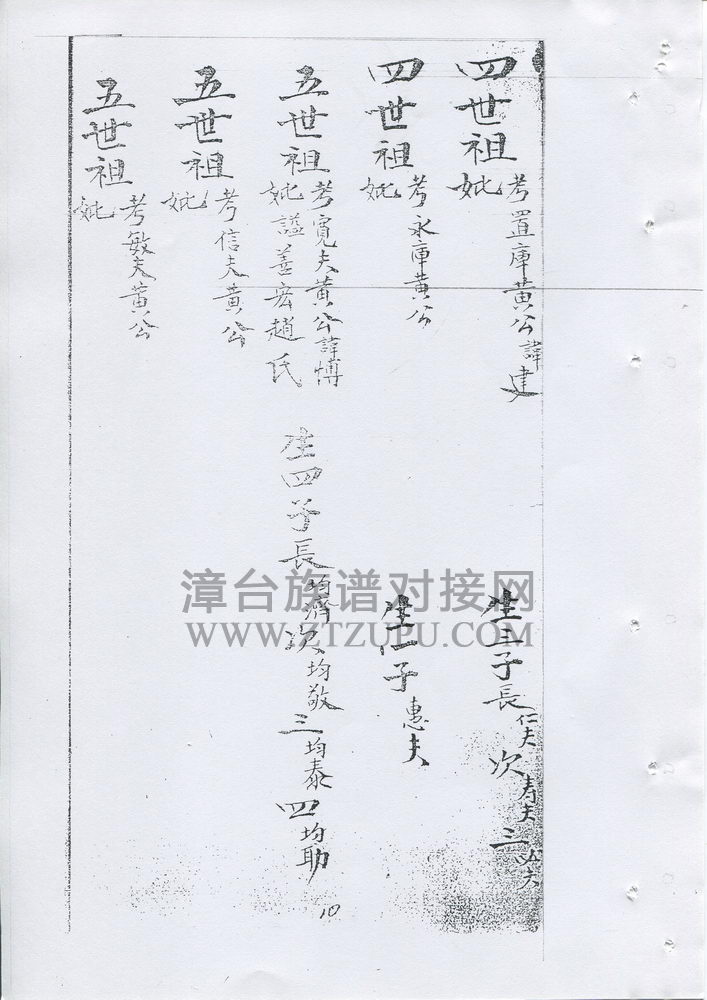 四世祖 考置庫黃公諱建 生三子長仁夫次寿夫三
妣
四世祖 考永庫黃公 生一子惠夫
妣
五世祖 考寬夫黃公諱博 生四子長均濟次均敬三均泰四均助
妣諡善宏趙氏
五世祖 考信夫黃公
妣
五世祖 考敏夫黃公
妣
10
漳台族谱对接网
WWW.ZTZUPU.COM